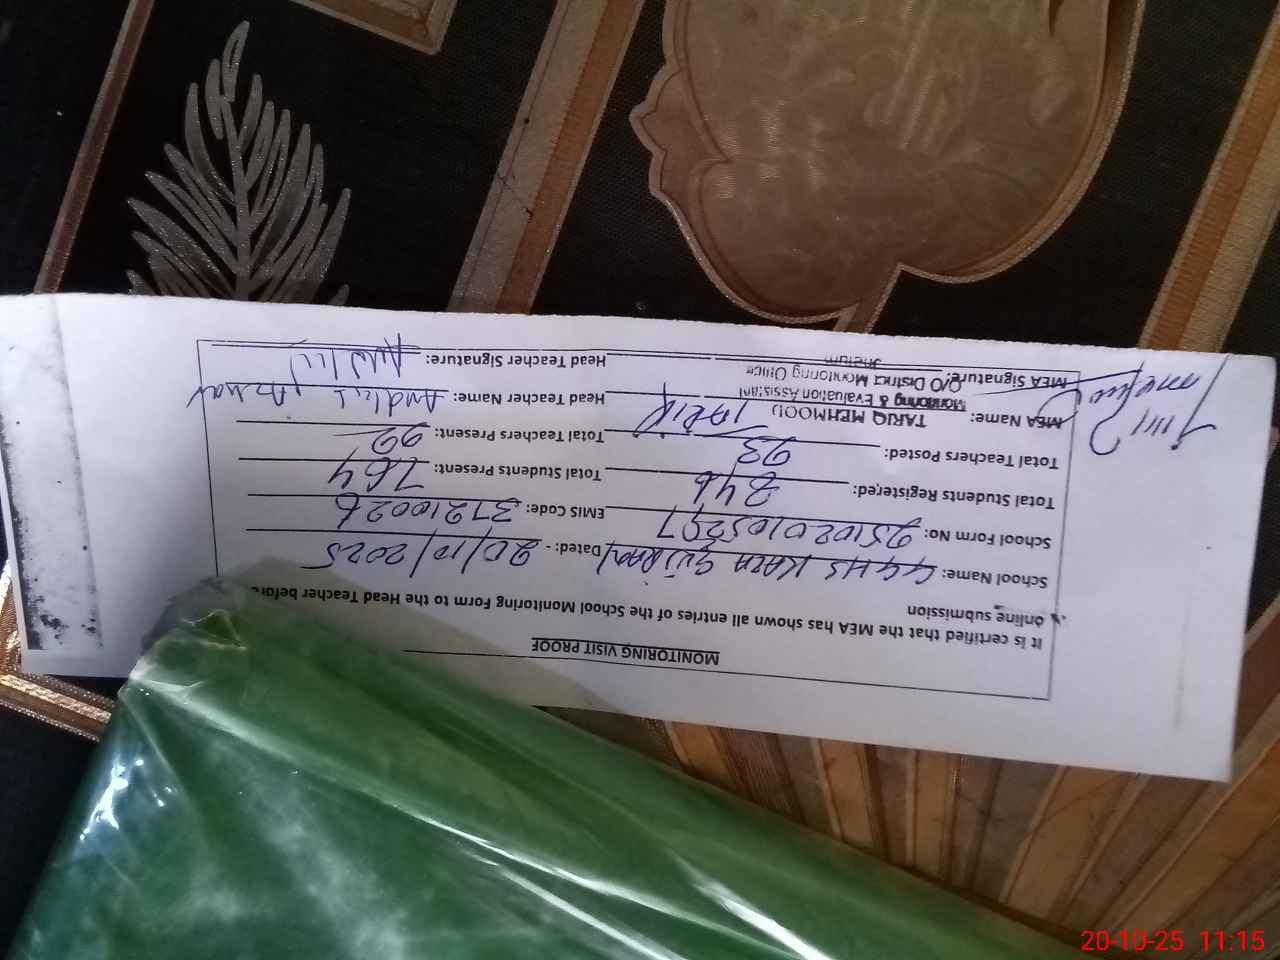 MONITORING VISIT PROOF
It is certified that the MEA has shown all entries of the School Monitoring Form to the Head Teacher before
online submission
School Name: GGHS KALA GUJRAN Dated: - 20/10/2025
School Form No: 2510201052 EMIS Code: 37210026
Total Students Registered: 846 Total Students Present: 764
Total Teachers Posted: 23 Total Teachers Present: 22
MEA Name: TARIQ Head Teacher Name:
TARIQ MEHMOOD
Monitoring & Evaluation Assistant
O/O District Monitoring Office
Jhelum
MEA Signature: Head Teacher Signature:
20-10-25 11:15